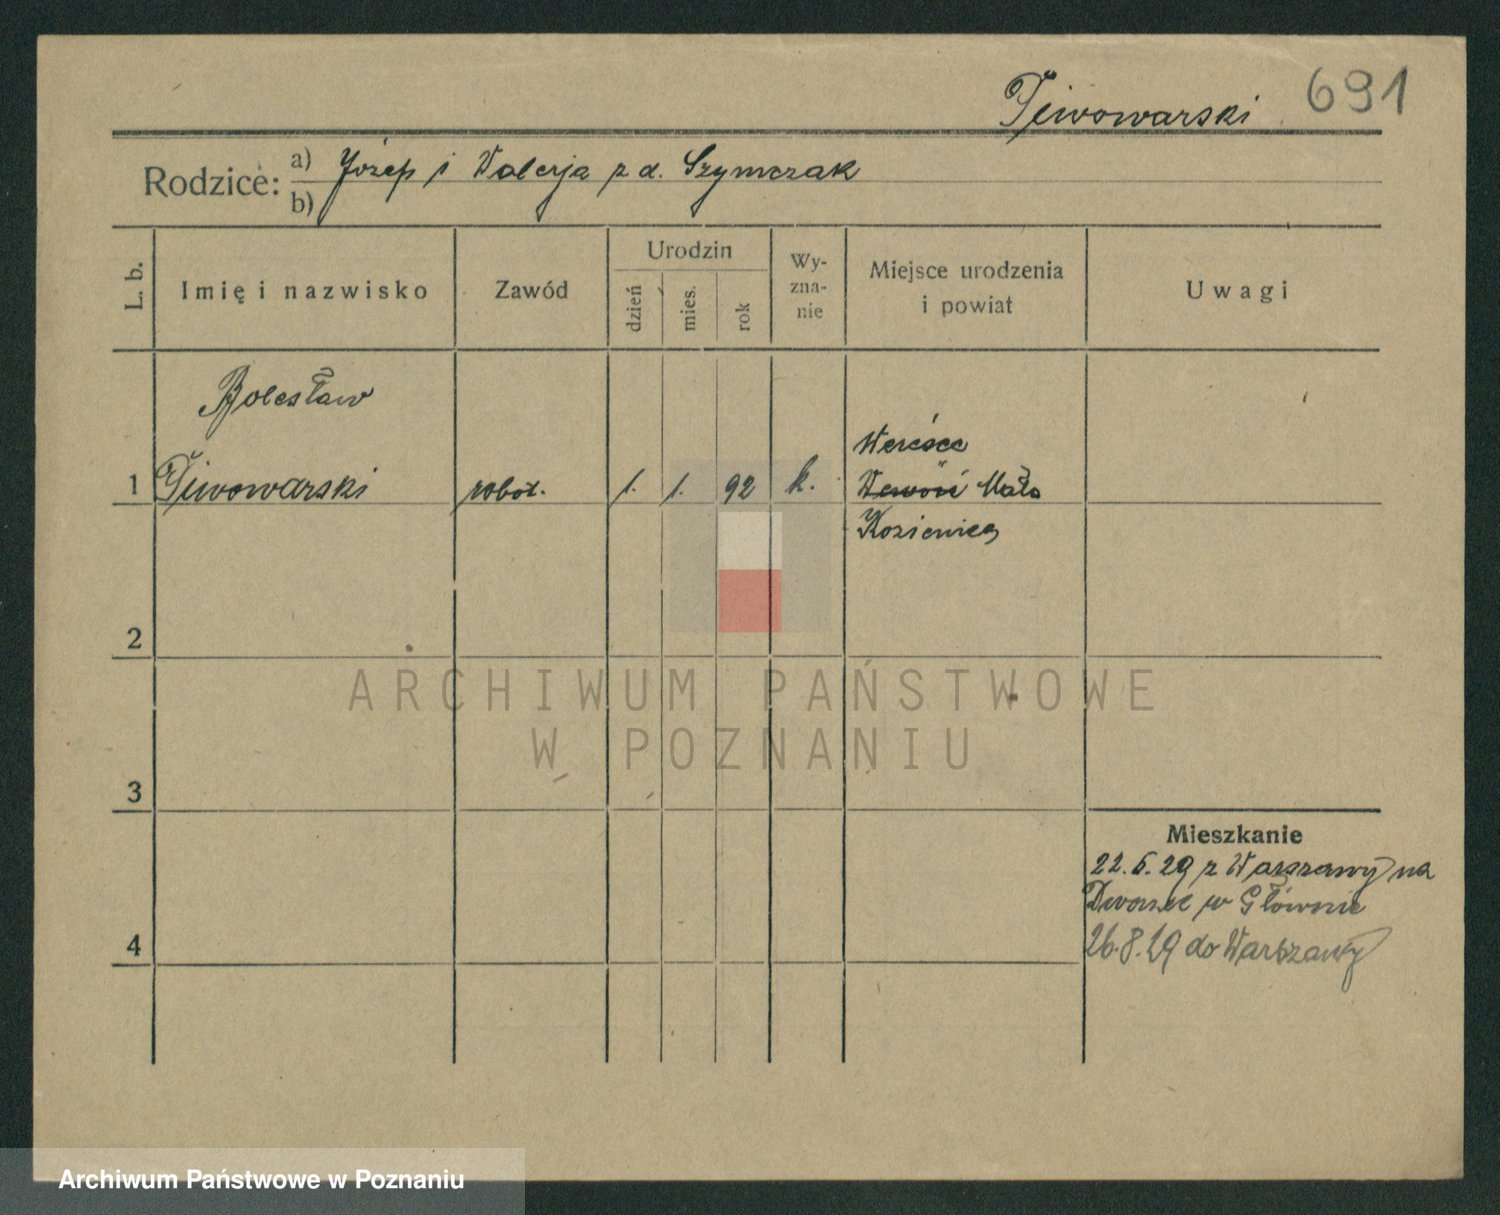 Piwowarski 691
Rodzice: a) Józef i Walerja z d. Szymczak
b)
L. b. Imię i nazwisko Zawód Urodzin dzień mies. rok Wy-zna-nie Miejsce urodzenia i powiat Uwagi
Bolesław
1 Piwowarski robot. 1. 1. 92 k.
Mała
Kozienice
2
3
4
Mieszkanie
22.6.29 z Warszawy na
w Głównie
26.8.29 do Warszawy
ARCHIWUM PAŃSTWOWE
W POZNANIU
Archiwum Państwowe w Poznaniu